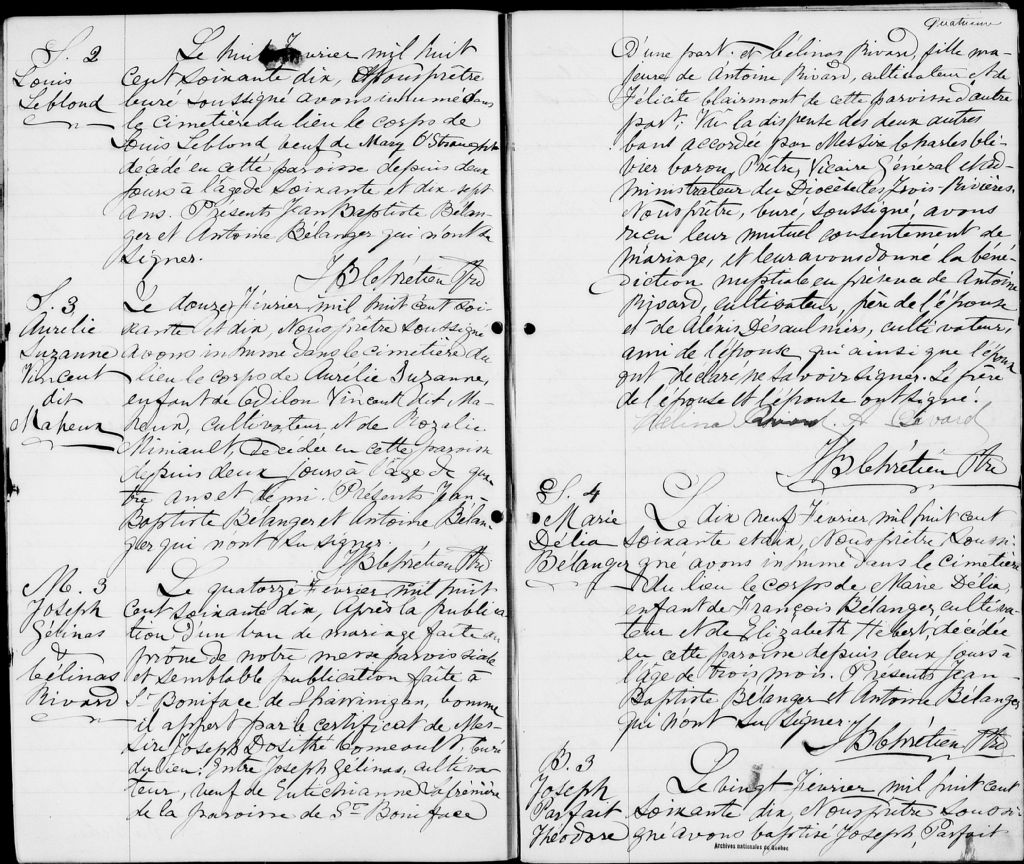 S. 2
Louis
Leblond
Le huit Fevrier mil huit
cent soixante dix, Nous prêtre
Curé soussigné avons inhumé dans
le cimetière du lieu le corps de
Louis Leblond veuf de Mary
décédé en cette paroisse depuis deux
jours à l'age de soixante et dix sept
ans. Présents Jean Baptiste Bélan-
ger et Antoine Bélanger qui n'ont su
signer.
JB Chrétien Ptre
S. 3
Aurélie
Suzanne
Vincent
dit
Maheux
Le douze Fevrier mil huit cent soi-
xante et dix, Nous prêtre soussigné
avons inhumé dans le cimetière du
lieu le corps de Aurélie Suzanne,
enfant de Odilon Vincent dit Ma-
heux, cultivateur et de Rozelie
Miniault, décédée en cette paroisse
depuis deux jours à l'age de qua-
tre ans et demi. Présents Jean-
Baptiste Bélanger et Antoine Bélan-
ger qui n'ont su signer.
JB Chrétien Ptre
M. 3
Joseph
Gélinas
&
Célinas
Rivard
Le quatorze Fevrier mil huit
cent soixante dix, Après la publica-
tion d'un ban de mariage faite au
prône de notre messe paroissiale
et semblable publication faite à
St Boniface de Shawinigan, comme
il appert par le certificat de Mes-
sire Joseph Dosithé Comeault, Curé
du lieu: Entre Joseph Gélinas, cultiva-
teur, veuf de
de la paroisse de St Boniface
Quatrieme
D'une part. et Célinas Rivard, fille ma-
jeure de Antoine Rivard, cultivateur et de
Félicite Clairmont de cette paroisse d'autre
part: Vu la dispense des deux autres
bans accordée par Messire Charles Oli-
vier Caron, Prêtre, Vicaire Général et ad-
ministrateur du Diocèse des Trois-Rivières,
Nous prêtre, Curé, soussigné, avons
recu leur mutuel consentement de
mariage, et leur avons donne la béné-
diction nuptiale en présence de Antoine
Rivard, cultivateur, père de l'épouse
et de Alexis Désaulniers, cultivateur,
ami de l'épouse, qui ainsi que l'époux
ont declaré ne savoir signer. Le frère
de l'épouse et l'épouse ont signé.
Hélina Rivard. A
JB Chrétien Ptre
S. 4
Marie
Délia
Bélanger
Le dix neuf Fevrier mil huit cent
soixante et dix, Nous prêtre, soussi-
gné avons inhumé dans le cimetière
du lieu le corps de Marie Délia,
enfant de François Bélanger, cultiva-
teur et de Elizabeth Hébert, décédée
en cette paroisse depuis deux jours à
l'âge de trois mois. Présents Jean-
Baptiste Bélanger et Antoine Bélanger
qui n'ont su signer.
JB Chrétien Ptre
B. 3
Joseph
Parfait
Théodore
Le vingt Fevrier mil huit cent
soixante dix, Nous prêtre soussi-
gné avons baptisé Joseph, Parfait
Archives nationales du Québec